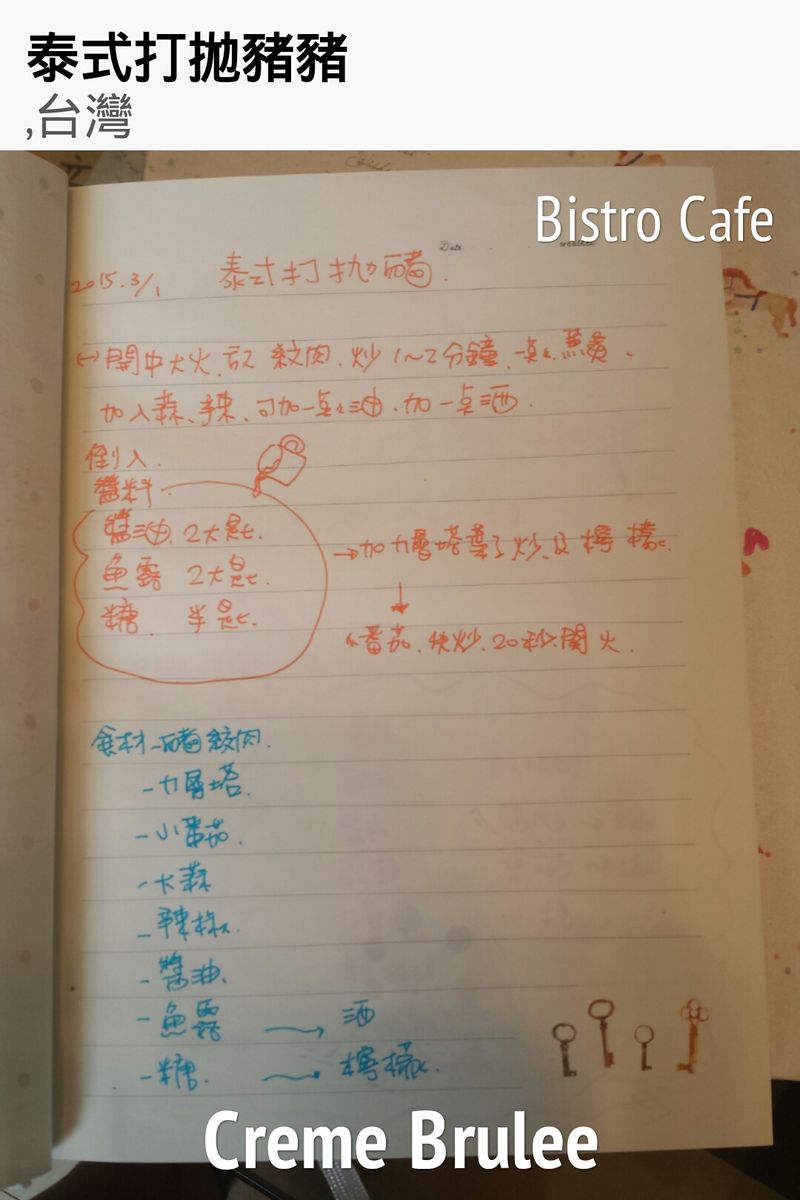 泰式打拋豬豬
,台灣
Bistro Cafe
Date
weather
2015.3/1 泰式打拋豬.
開中大火.放 絞肉.炒 1~2分鐘.一點點薑黃、
加入蒜、辣、可加一點點油.加一点酒.
倒入.
醬料
醬油.2大匙.
魚露 2大匙.
糖. 半匙.
→加九層塔葉子炒,及檸檬.
小番茄.快炒.20秒.関火.
食材-豬絞肉.
-九層塔.
-小番茄.
-大蒜
-辣椒.
-醬油.
-魚露 → 酒
-糖. → 檸檬.
Creme Brulee